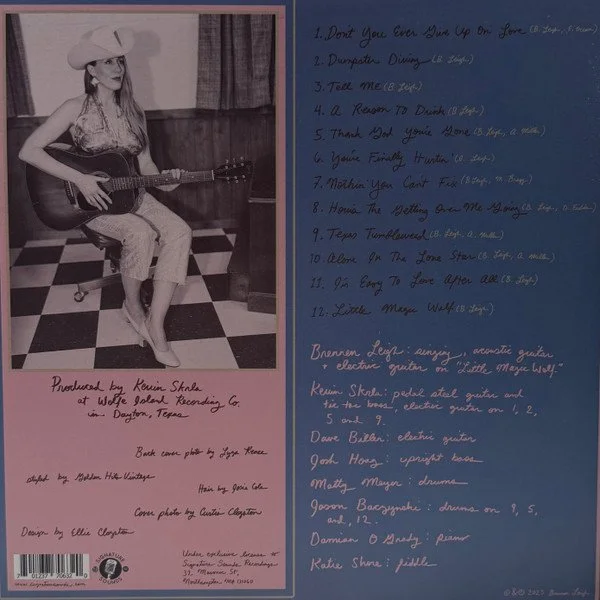 Produced by Kevin Skrla
at Wolfe Island Recording Co.
in Dayton, Texas
Back cover photo by Lyza Renee
styled by Golden Hits Vintage
Hair by Josie Cole
Cover photo by Curtis Clogston
Design by Ellie Clogston
7 01237 70632 0
SIGNATURE SOUNDS
Under exclusive license to
Signature Sounds Recordings
32 Masonic St,
Northampton MA 01060
1. Don't You Ever Give Up On Love (B. Leigh,
2. Dumpster Diving (B. Leigh)
3. Tell Me (B. Leigh)
4. A Reason To Drink (B. Leigh)
5. Thank God You're Gone (B. Leigh, A. Miller)
6. You're Finally Hurtin' (B. Leigh)
7. Nothin' You Can't Fix (B. Leigh,
8. How's The Getting Over Me Going (B. Leigh,
9. Texas Tumbleweed (B. Leigh, A. Miller)
10. Alone In The Lone Star (B. Leigh, A. Miller)
11. I'm Easy To Love After All (B. Leigh)
12. Little Magic Wolf (B. Leigh)
Brennen Leigh: singing, acoustic guitar
+ electric guitar on "Little Magic Wolf"
Kevin Skrla: pedal steel guitar and
tic tac bass, electric guitar on 1, 2,
5 and 9.
Dave Biller: electric guitar
Josh Hoag: upright bass
Matty Meyer: drums
Jason Baczynski: drums on 5,
and, 12.
Damian O'Grady: piano
Katie Shore: fiddle
℗ & © 2025 Brennen Leigh